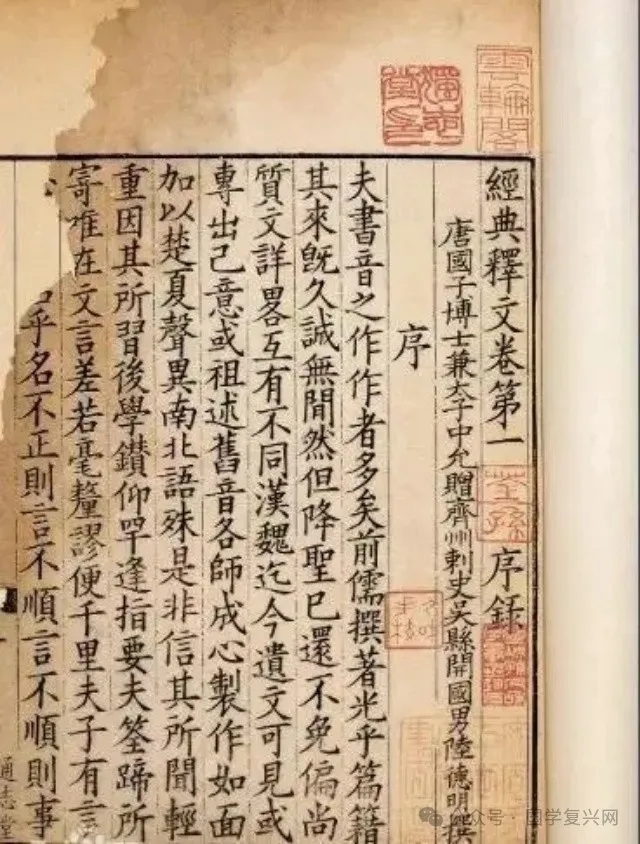 雲輪閣
獨志堂印
經典釋文卷第一 荃孫 序錄
唐國子博士兼太子中允贈齊州刺史吳縣開國男陸德明撰
序
夫書音之作作者多矣前儒撰著光乎篇籍
其來旣久誠無閒然但降聖已還不免偏尚
質文詳畧互有不同漢魏迄今遺文可見或
專出己意或祖述舊音各師成心製作如面
加以楚夏聲異南北語殊是非信其所聞輕
重因其所習後學鑽仰罕逢指要夫筌蹄所
寄唯在文言差若毫釐謬便千里夫子有言
乎名不正則言不順言不順則事
通志堂
公众号·国学复兴网